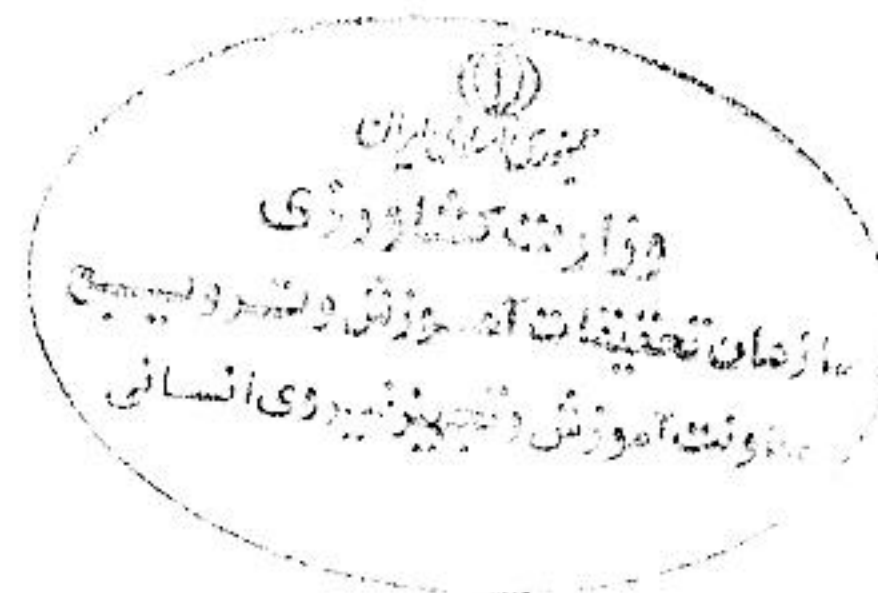 جمهوری اسلامی ایران
وزارت کشاورزی
سازمان تحقیقات آموزش و ترویج
معاونت آموزش و تجهیز نیروی انسانی